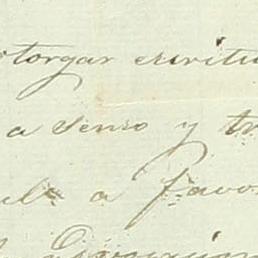 otorgar escritu
a senso y tr
a favo